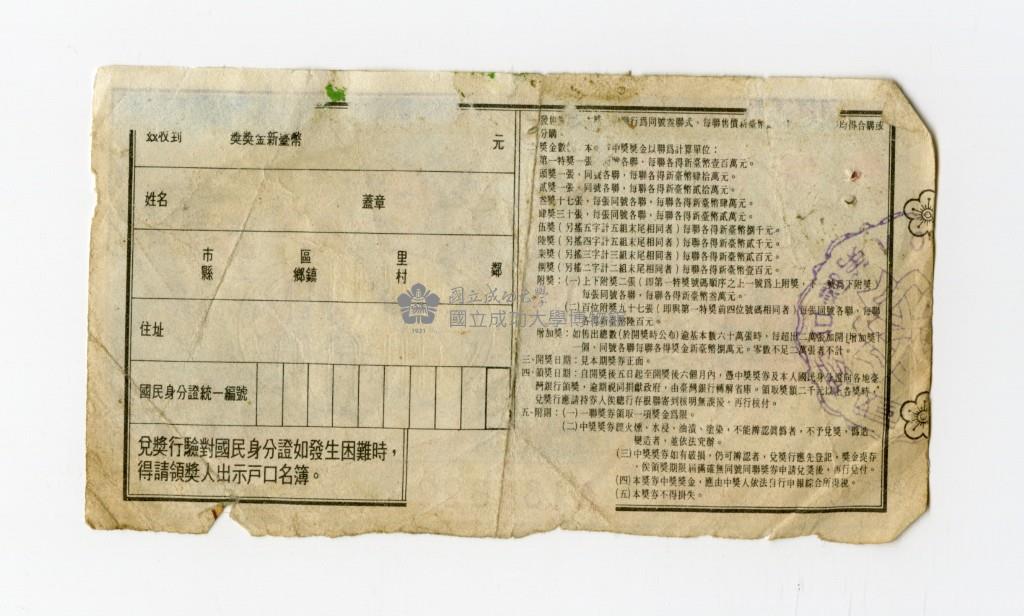 茲收到 獎獎金新臺幣 元
姓名 蓋章
市縣 區鄉鎮 里村 鄰
住址
國民身分證統一編號
兌獎行驗對國民身分證如發生困難時,
得請領獎人出示戶口名簿。
行爲同號叁聯式,每聯售價新臺幣 均得合購或
分購。
中獎獎金以聯爲計算單位:
第一特獎一張 各聯,每聯各得新臺幣壹百萬元。
頭獎一張,同號各聯,每聯各得新臺幣肆拾萬元。
貳獎一張,同號各聯,每聯各得新臺幣貳拾萬元。
叁獎十七張,每張同號各聯,每聯各得新臺幣肆萬元。
肆獎三十張,每張同號各聯,每聯各得新臺幣貳萬元。
伍獎(另搖五字計五組末尾相同者)每聯各得新臺幣捌千元。
陸獎(另搖四字計五組末尾相同者)每聯各得新臺幣貳千元。
柒獎(另搖三字計三組末尾相同者)每聯各得新臺幣貳百元。
捌獎(另搖二字計二組末尾相同者)每聯各得新臺幣壹百元。
附獎:(一)上下附獎二張(即第一特獎號碼順序之上一號爲上附獎,下一號爲下附獎)
每張同號各聯,每聯各得新臺幣叁萬元。
(二)百位附獎九十七張(即與第一特獎前四位號碼相同者)每張同號各聯,每聯
各得新臺幣陸百元。
增加獎:如售出總數(於開獎時公布)逾基本數六十萬張時,每超出二萬張加開(增加獎)
一個,同號各聯每聯各得獎金新臺幣捌萬元。零數不足二萬張者不計。
三、開獎日期:見本期獎券正面。
四、領獎日期:自開獎後五日起至開獎後六個月內,憑中獎獎券及本人國民身分證向各地臺
灣銀行領獎,逾期視同捐獻政府,由臺灣銀行轉解省庫。領取獎額二千元以上各獎時,
兌獎行應請持券人俟總行存根聯寄到核明無誤後,再行核付。
五、附則:(一)一聯獎券領取一項獎金爲限。
(二)中獎獎券經火燻、水浸、油漬、塗染,不能辨認眞僞者,不予兌獎,僞造、
變造者,並依法究辦。
(三)中獎獎券如有破損,仍可辨認者,兌獎行應先登記,獎金提存
,俟領獎期限屆滿確無同號同聯獎券申請兌獎後,再行兌付。
(四)本獎券中獎獎金,應由中獎人依法自行申報綜合所得稅。
(五)本獎券不得掛失。
國立成功大學
國立成功大學博物館
1931